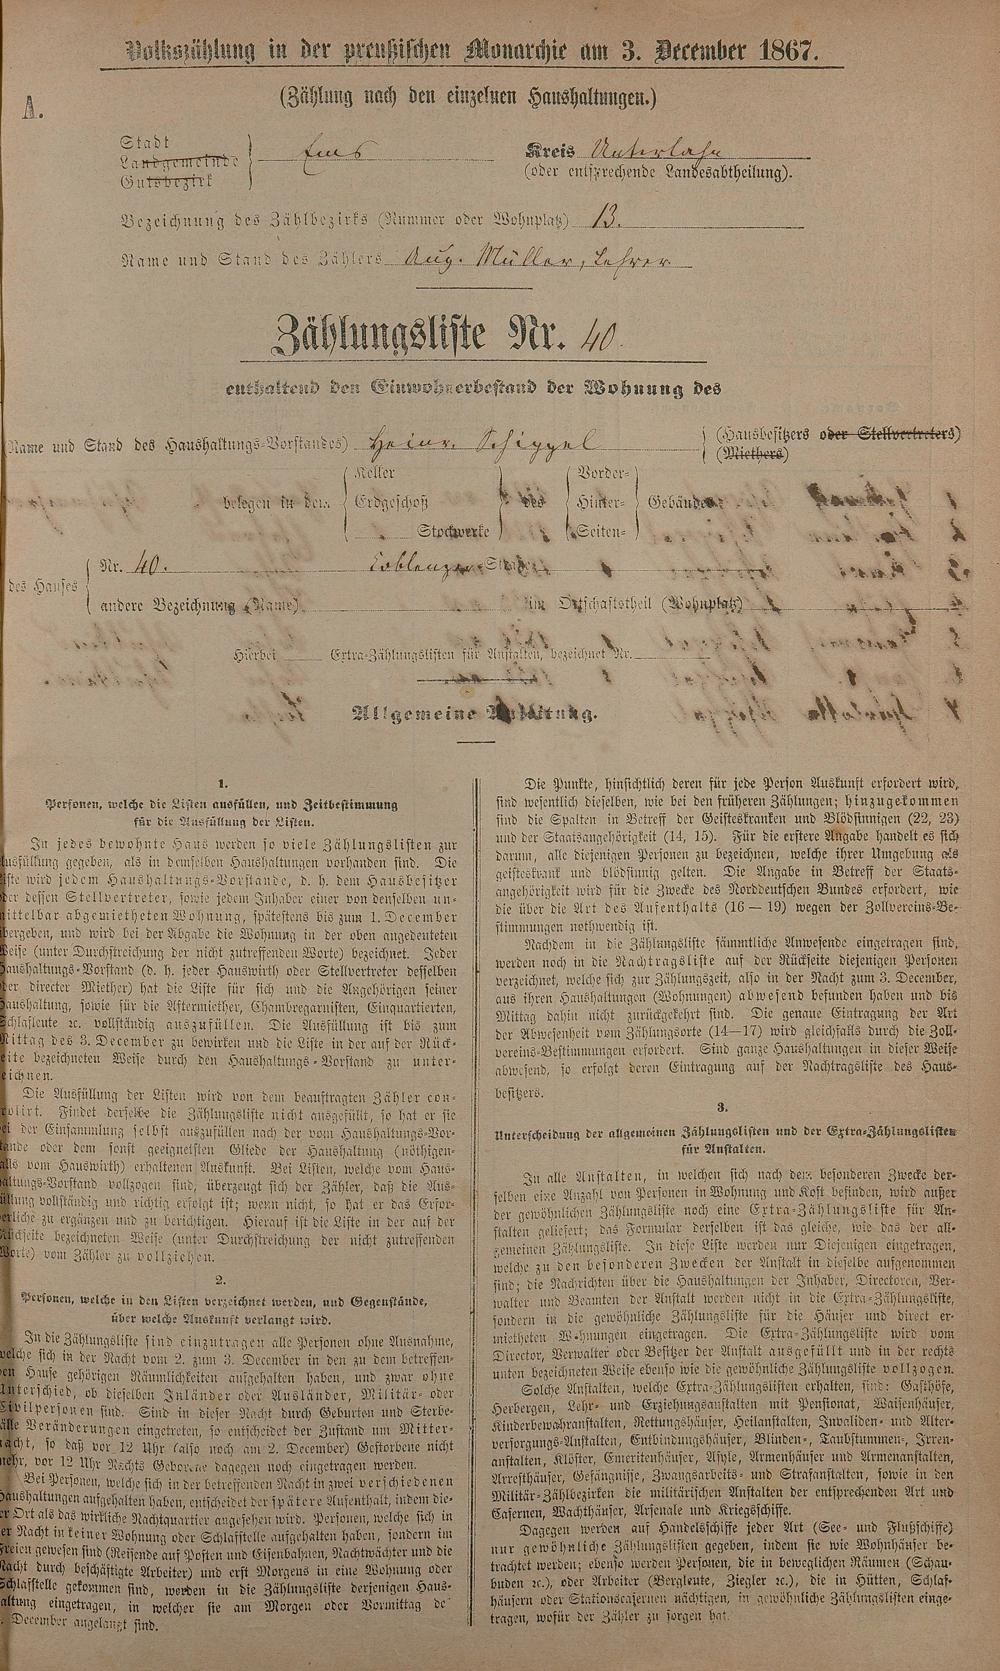 Volkszählung in der preußischen Monarchie am 3. December 1867.
A.
(Zählung nach den einzelnen Haushaltungen.)
Stadt
Landgemeinde
Gutsbezirk
Ems
Kreis Unterlahn
(oder entsprechende Landesabtheilung).
Bezeichnung des Zählbezirks (Nummer oder Wohnplatz) 13.
Name und Stand des Zählers Aug. Müller, Lehrer
Zählungsliste Nr. 40.
enthaltend den Einwohnerbestand der Wohnung des
(Name und Stand des Haushaltungs-Vorstandes) Heinr. Schippel
(Hausbesitzers oder Stellvertreters)
(Miethers)
belegen in dem
Keller
Erdgeschoß
Stockwerke
des
Vorder-
Hinter-
Seiten-
Gebäudes
des Hauses
Nr. 40. Coblenzer-Straße
andere Bezeichnung (Name) im Ortschaftstheil (Wohnplatz)
Hierbei Extra-Zählungslisten für Anstalten, bezeichnet Nr.
Allgemeine Anleitung.
1.
Personen, welche die Listen ausfüllen, und Zeitbestimmung
für die Ausfüllung der Listen.
In jedes bewohnte Haus werden so viele Zählungslisten zur
Ausfüllung gegeben, als in demselben Haushaltungen vorhanden sind. Die
Liste wird jedem Haushaltungs-Vorstande, d. h. dem Hausbesitzer
oder dessen Stellvertreter, sowie jedem Inhaber einer von denselben un-
mittelbar abgemietheten Wohnung, spätestens bis zum 1. December
übergeben, und wird bei der Abgabe die Wohnung in der oben angedeuteten
Weise (unter Durchstreichung der nicht zutreffenden Worte) bezeichnet. Jeder
Haushaltungs-Vorstand (d. h. jeder Hauswirth oder Stellvertreter desselben
oder directer Miether) hat die Liste für sich und die Angehörigen seiner
Haushaltung, sowie für die Aftermiether, Chambregarnisten, Einquartierten,
Schlafleute ꝛc. vollständig auszufüllen. Die Ausfüllung ist bis zum
Mittag des 3. December zu bewirken und die Liste in der auf der Rück-
seite bezeichneten Weise durch den Haushaltungs-Vorstand zu unter-
zeichnen.
Die Ausfüllung der Listen wird von dem beauftragten Zähler con-
trolirt. Findet derselbe die Zählungsliste nicht ausgefüllt, so hat er sie
bei der Einsammlung selbst auszufüllen nach der vom Haushaltungs-Vor-
stande oder dem sonst geeignetsten Gliede der Haushaltung (nöthigen-
falls vom Hauswirth) erhaltenen Auskunft. Bei Listen, welche vom Haus-
haltungs-Vorstand vollzogen sind, überzeugt sich der Zähler, daß die Aus-
füllung vollständig und richtig erfolgt ist; wenn nicht, so hat er das Erfor-
derliche zu ergänzen und zu berichtigen. Hierauf ist die Liste in der auf der
Rückseite bezeichneten Weise (unter Durchstreichung der nicht zutreffenden
Worte) vom Zähler zu vollziehen.
2.
Personen, welche in den Listen verzeichnet werden, und Gegenstände,
über welche Auskunft verlangt wird.
In die Zählungsliste sind einzutragen alle Personen ohne Ausnahme,
welche sich in der Nacht vom 2. zum 3. December in den zu dem betreffen-
den Hause gehörigen Räumlichkeiten aufgehalten haben, und zwar ohne
Unterschied, ob dieselben Inländer oder Ausländer, Militär- oder
Civilpersonen sind. Sind in dieser Nacht durch Geburten und Sterbe-
fälle Veränderungen eingetreten, so entscheidet der Zustand um Mitter-
nacht, so daß vor 12 Uhr (also noch am 2. December) Gestorbene nicht
mehr, vor 12 Uhr Nachts Geborene dagegen noch eingetragen werden.
Bei Personen, welche sich in der betreffenden Nacht in zwei verschiedenen
Haushaltungen aufgehalten haben, entscheidet der spätere Aufenthalt, indem die-
ser Ort als das wirkliche Nachtquartier angesehen wird. Personen, welche sich in
der Nacht in keiner Wohnung oder Schlafstelle aufgehalten haben, sondern im
Freien gewesen sind (Reisende auf Posten und Eisenbahnen, Nachtwächter und die
Nacht durch beschäftigte Arbeiter) und erst Morgens in eine Wohnung oder
Schlafstelle gekommen sind, werden in die Zählungsliste derjenigen Haus-
haltung eingetragen, in welcher sie am Morgen oder Vormittag de
. December angelangt sind.
Die Punkte, hinsichtlich deren für jede Person Auskunft erfordert wird,
sind wesentlich dieselben, wie bei den früheren Zählungen; hinzugekommen
sind die Spalten in Betreff der Geisteskranken und Blödsinnigen (22, 23)
und der Staatsangehörigkeit (14, 15). Für die erstere Angabe handelt es sich
darum, alle diejenigen Personen zu bezeichnen, welche ihrer Umgebung als
geisteskrank und blödsinnig gelten. Die Angabe in Betreff der Staats-
angehörigkeit wird für die Zwecke des Norddeutschen Bundes erfordert, wie
die über die Art des Aufenthalts (16—19) wegen der Zollvereins-Be-
stimmungen nothwendig ist.
Nachdem in die Zählungsliste sämmtliche Anwesende eingetragen sind,
werden noch in die Nachtragsliste auf der Rückseite diejenigen Personen
verzeichnet, welche sich zur Zählungszeit, also in der Nacht zum 3. December,
aus ihren Haushaltungen (Wohnungen) abwesend befunden haben und bis
Mittag dahin nicht zurückgekehrt sind. Die genaue Eintragung der Art
der Abwesenheit vom Zählungsorte (14—17) wird gleichfalls durch die Zoll-
vereins-Bestimmungen erfordert. Sind ganze Haushaltungen in dieser Weise
abwesend, so erfolgt deren Eintragung auf der Nachtragsliste des Haus-
besitzers.
3.
Unterscheidung der allgemeinen Zählungslisten und der Extra-Zählungslisten
für Anstalten.
In alle Anstalten, in welchen sich nach dem besonderen Zwecke der-
selben eine Anzahl von Personen in Wohnung und Kost befinden, wird außer
der gewöhnlichen Zählungsliste noch eine Extra-Zählungsliste für An-
stalten geliefert; das Formular derselben ist das gleiche, wie das der all-
gemeinen Zählungsliste. In diese Liste werden nur Diejenigen eingetragen,
welche zu den besonderen Zwecken der Anstalt in dieselbe aufgenommen
sind; die Nachrichten über die Haushaltungen der Inhaber, Directoren, Ver-
walter und Beamten der Anstalt werden nicht in die Extra-Zählungsliste,
sondern in die gewöhnliche Zählungsliste für die Häuser und direct er-
mietheten Wohnungen eingetragen. Die Extra-Zählungsliste wird vom
Director, Verwalter oder Besitzer der Anstalt ausgefüllt und in der rechts
unten bezeichneten Weise ebenso wie die gewöhnliche Zählungsliste vollzogen.
Solche Anstalten, welche Extra-Zählungslisten erhalten, sind: Gasthöfe,
Herbergen, Lehr- und Erziehungsanstalten mit Pensionat, Waisenhäuser,
Kinderbewahranstalten, Rettungshäuser, Heilanstalten, Invaliden- und Alter-
versorgungs-Anstalten, Entbindungshäuser, Blinden-, Taubstummen-, Irren-
anstalten, Klöster, Emeritenhäuser, Asyle, Armenhäuser und Armenanstalten,
Arresthäuser, Gefängnisse, Zwangsarbeits- und Strafanstalten, sowie in den
Militär-Zählbezirken die militärischen Anstalten der entsprechenden Art und
Casernen, Wachthäuser, Arsenale und Kriegsschiffe.
Dagegen werden auf Handelsschiffe jeder Art (See- und Flußschiffe)
nur gewöhnliche Zählungslisten gegeben, indem sie wie Wohnhäuser be-
trachtet werden; ebenso werden Personen, die in beweglichen Räumen (Schau-
buden ꝛc.), oder Arbeiter (Bergleute, Ziegler ꝛc.), die in Hütten, Schlaf-
häusern oder Stationscasernen nächtigen, in gewöhnliche Zählungslisten einge-
tragen, wofür der Zähler zu sorgen hat.